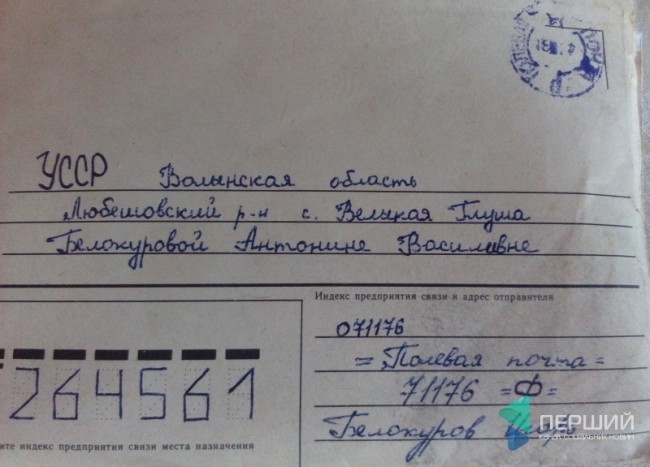 УССР Волынская область
Любешовский р-н с. Велыкая Глуша
Белокуровой Антонине Василивне
Индекс предприятия связи и адрес отправителя
071176
= Полевая почта =
71176 =Ф=
Белокуров
264561
индекс предприятия связи места назначения
ПЕРШИЙ